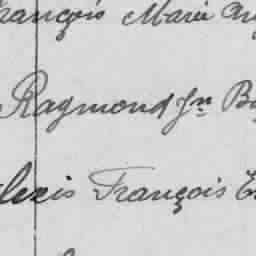 François Marie
Raymond Jn
Alexis François